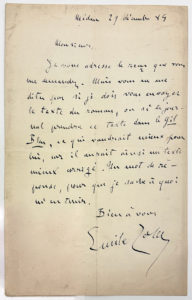 Médan 29 décembre 89
Monsieur,
Je vous adresse le reçu que vous
me demandez. Mais vous ne me
dites pas si je dois vous envoyer
le texte du roman, ou si le journal
prendra ce texte dans le Gil
Blas, ce qui vaudrait mieux pour
lui, car il aurait ainsi un texte
mieux corrigé. Un mot de ré-
ponse, pour que je sache à quoi
m'en tenir.
Bien à vous
Emile Zola